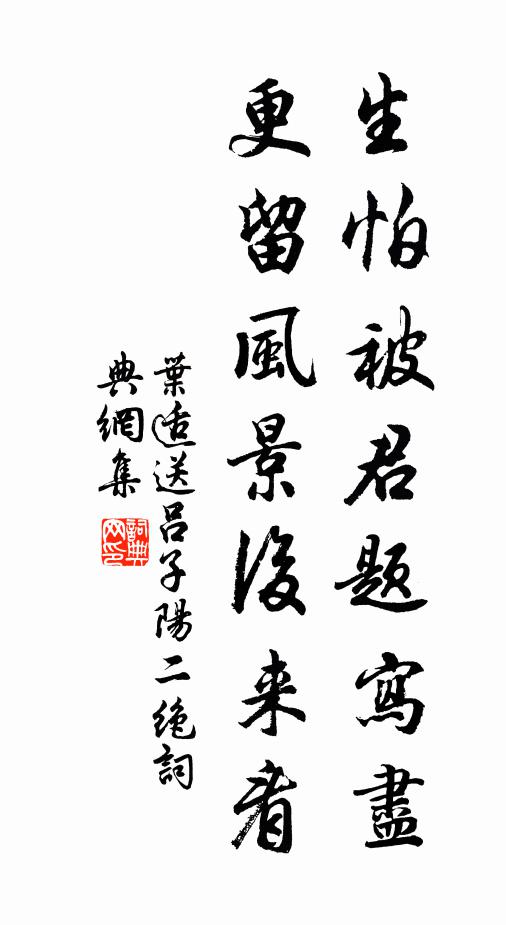 生怕被君題寫盡
更留風景後来看
葉适送吕子陽二絶詞
典網集
詞典
网印